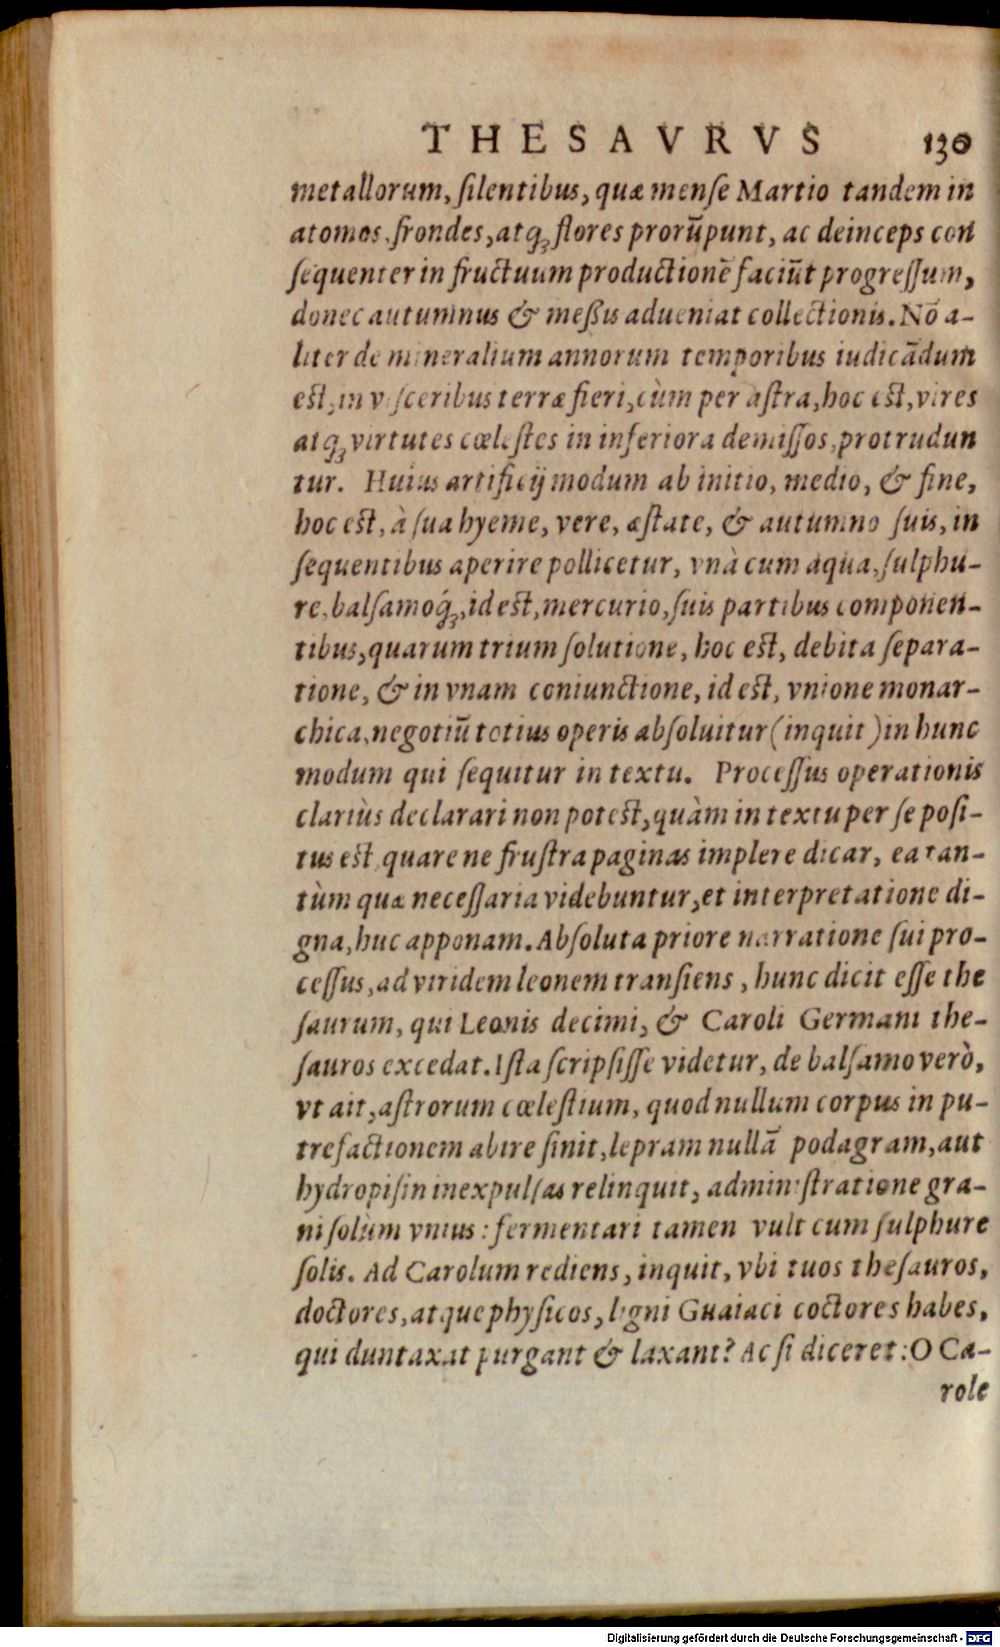 THESAVRVS 130
metallorum, ſilentibus, quæ menſe Martio tandem in
atomos, frondes, atq́ꝫ flores prorūpunt, ac deinceps con
ſequenter in fructuum productionē faciūt progreſſum,
donec autumnus & meßis adueniat collectionis. Nō a-
liter de mineralium annorum temporibus iudicādum
est, in viſceribus terræ fieri, cùm per aſtra, hoc est, vires
atqꝫ virtutes cœleſtes in inferiora demiſſos, protrudun
tur. Huius artificij modum ab initio, medio, & fine,
hoc est, à ſua hyeme, vere, æſtate, & autumno ſuis, in
ſequentibus aperire pollicetur, vnà cum aqua, ſulphu-
re, balſamoq́ꝫ, id est, mercurio, ſuis partibus componen-
tibus, quarum trium ſolutione, hoc est, debita ſepara-
tione, & in vnam coniunctione, id est, vnione monar-
chica, negotiū totius operis abſoluitur (inquit) in hunc
modum qui ſequitur in textu. Proceſſus operationis
clariùs declarari non potest, quàm in textu per ſe poſi-
tus est, quare ne fruſtra paginas implere dicar, ea tan-
tùm quæ neceſſaria videbuntur, et interpretatione di-
gna, huc apponam. Abſoluta priore narratione ſui pro-
ceſſus, ad viridem leonem tranſiens, hunc dicit eſſe the
ſaurum, qui Leonis decimi, & Caroli Germani the-
ſauros excedat. Iſta ſcripſiſſe videtur, de balſamo verò,
vt ait, aſtrorum cœleſtium, quod nullum corpus in pu-
trefactionem abire ſinit, lepram nullā podagram, aut
hydropiſin inexpulſas relinquit, adminiſtratione gra-
ni ſolùm vnius: fermentari tamen vult cum ſulphure
ſolis. Ad Carolum rediens, inquit, vbi tuos theſauros,
doctores, atque phyſicos, ligni Guaiaci coctores habes,
qui duntaxat purgant & laxant? Ac ſi diceret: O Ca-
role
Digitalisierung gefördert durch die Deutsche Forschungsgemeinschaft - DFG